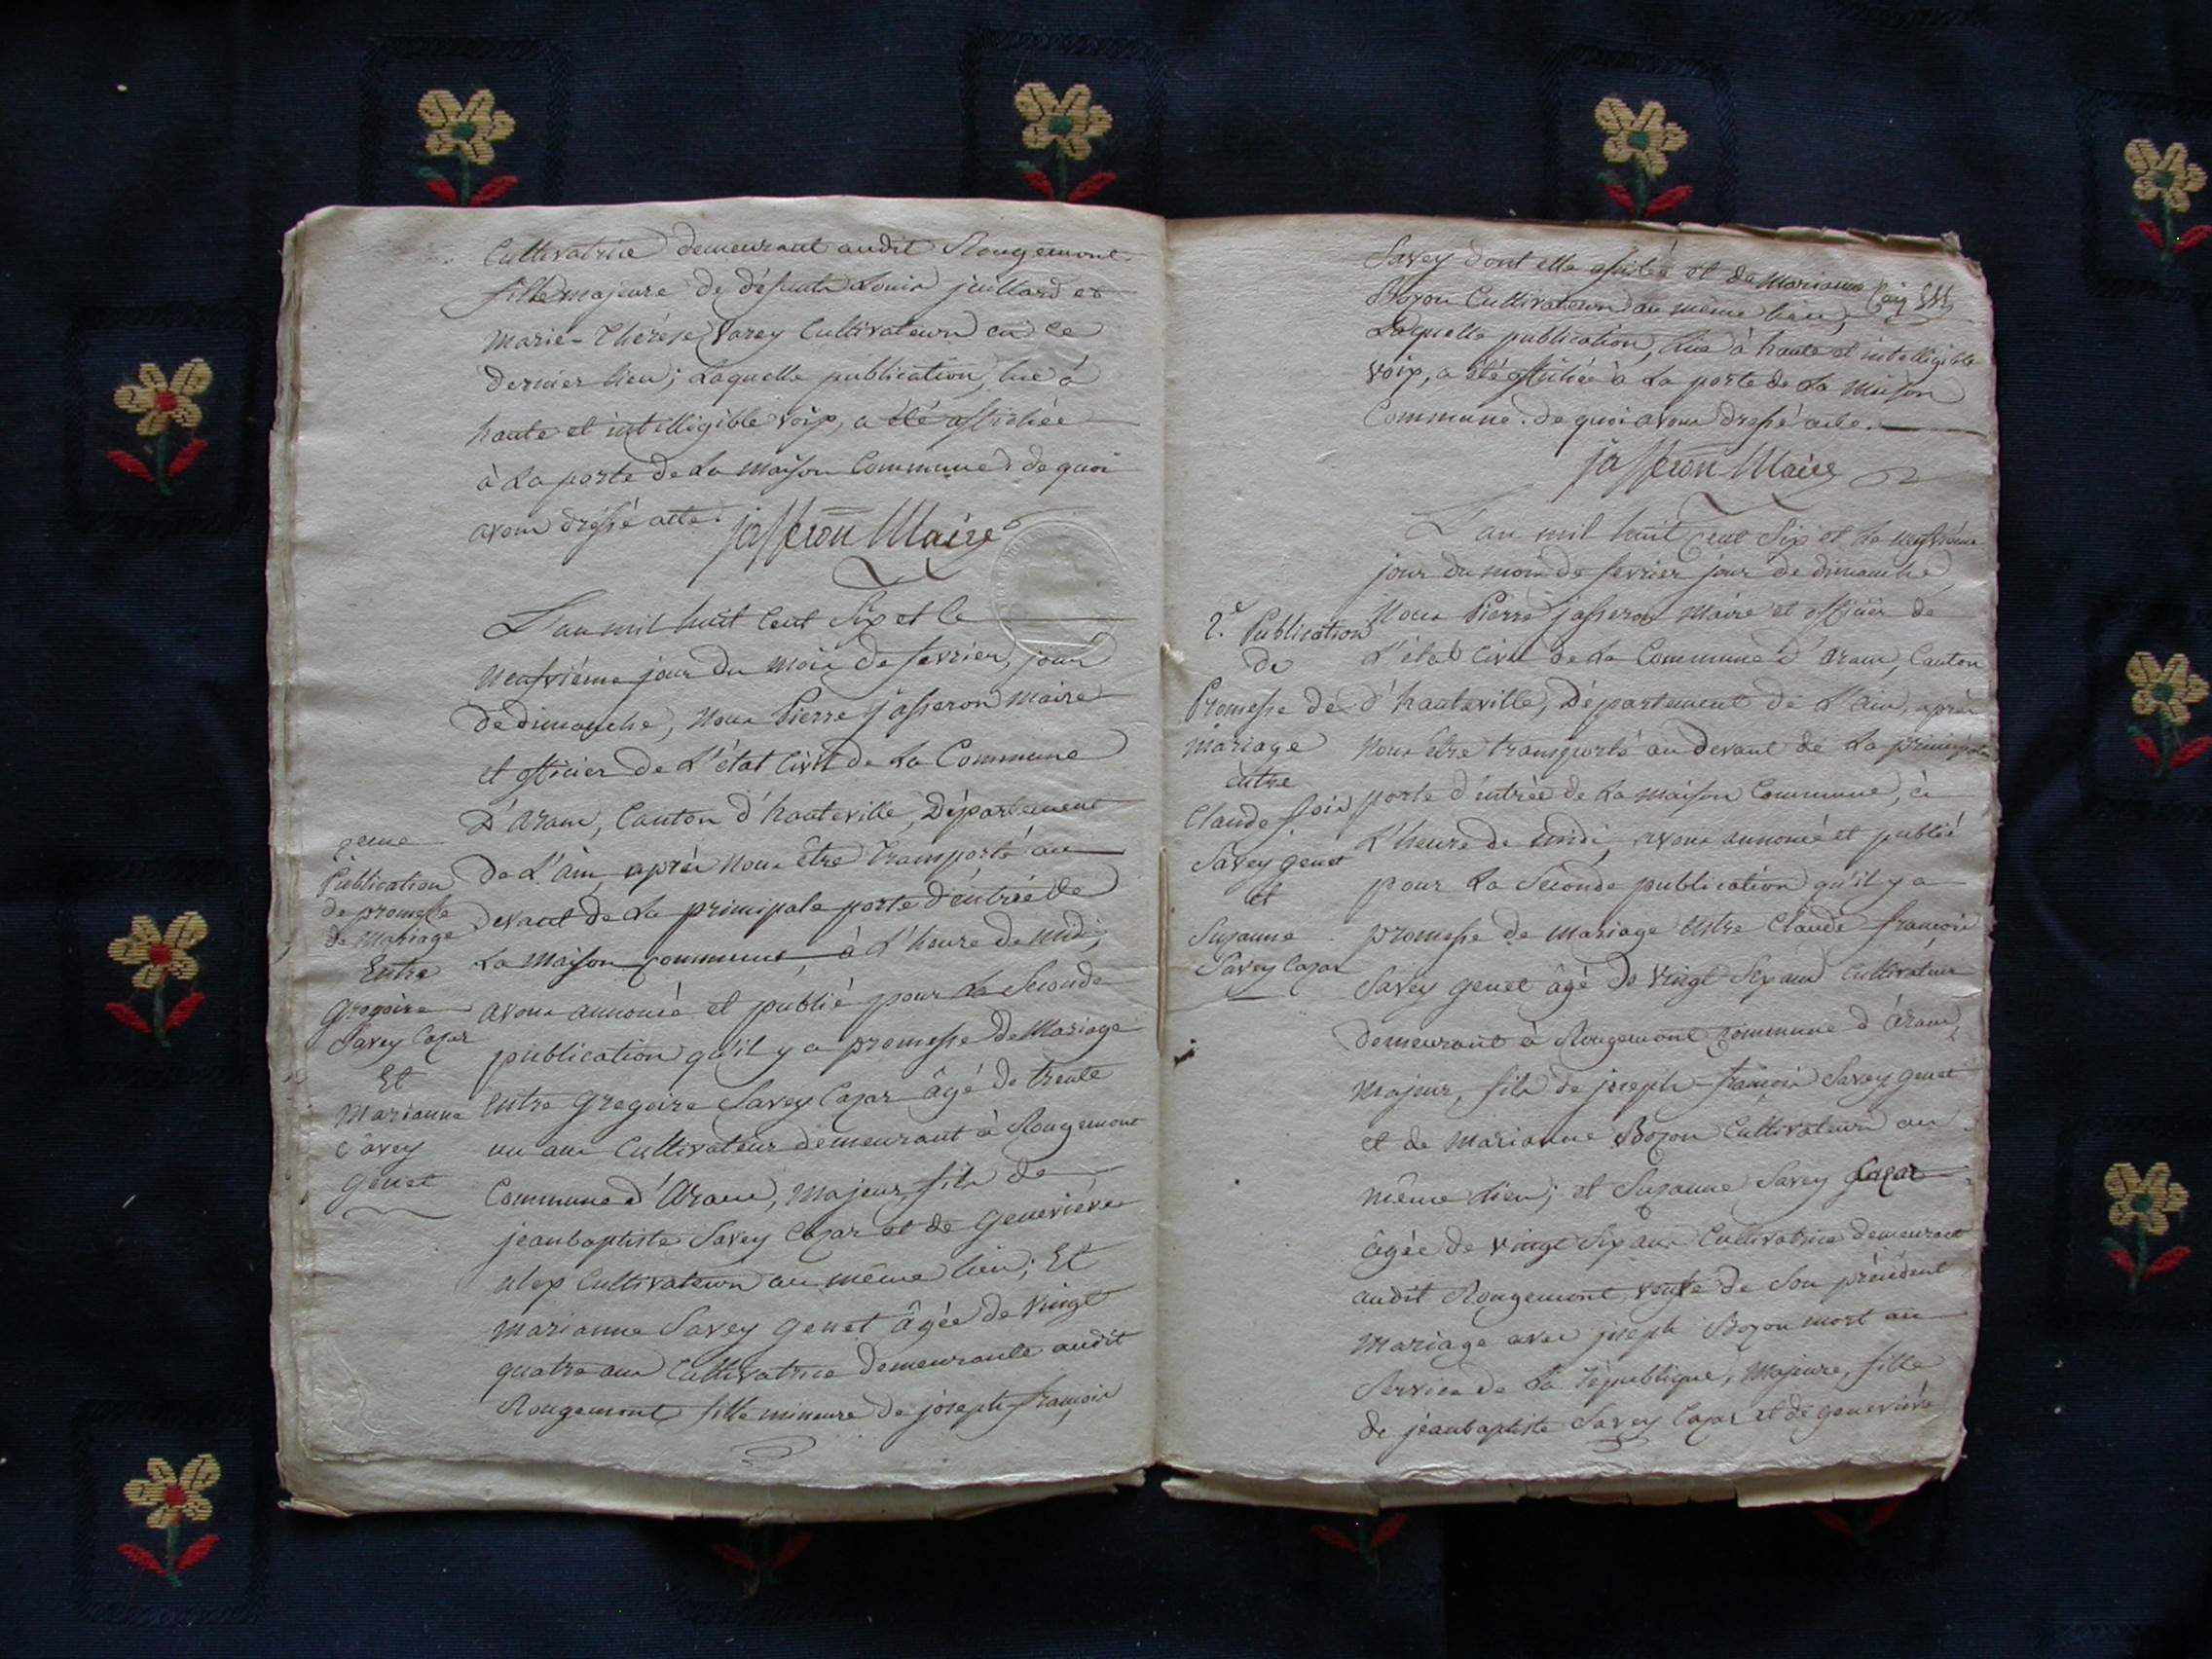 Cultivatrice demeurant audit Rougemont
fille majeure de défunts Louis juillard et
Marie-Thérèse Varey Cultivateurs en ce
dernier lieu; Laquelle publication, lue à
haute et intelligible voix, a été affichée
à La porte de La Maison Commune, de quoi
avons dressé acte.
jasseron Maire
L'an mil huit Cent Six et le
neufvième jour du mois de fevrier, jour
de dimanche, Nous Pierre jasseron Maire
et officier de L'état Civil de La Commune
D'Arane, Canton d'hauteville, Département
de L'Ain, après nous être transporté au
devant de La principale porte d'entrée de
La Maison commune, à L'heure de midi,
avons annoncé et publié pour La Seconde
publication qu'il y a promesse de Mariage
entre Gregoire Savey Cazar âgé de trente
un ans Cultivateur demeurant à Rougemont
Commune d'Arane, Majeur, fils de
jeanbaptiste Savey Cazar et de Genevieve
alex Cultivateurs au même lieu; Et
Marianne Savey Genet âgée de Vingt
quatre ans Cultivatrice demeurante audit
Rougemont, fille mineure de joseph-françois
2eme
Publication
de promesse
de Mariage
Entre
Gregoire
Savey Cazar
Et
Marianne
Savey
Genet
Savey dont elle assistée et de Marianne
Bozon Cultivateurs au même lieu,
Laquelle publication, lue à haute et intelligible
Voix, a été affichée à La porte de La Maison
Commune. de quoi avons dressé acte.
jasseron Maire
L'an mil huit Cent Six et Le neufvième
jour du mois de fevrier jour de dimanche
Nous Pierre jasseron Maire et officier de
L'état Civil de La Commune d'Arane, Canton
d'hauteville, Département de L'Ain, après
nous être transporté au devant de La principale
porte d'entrée de La Maison Commune, à
L'heure de midi, avons annoncé et publié
pour La Seconde publication qu'il y a
promesse de mariage entre Claude françois
Savey Genet âgé de Vingt Six ans Cultivateur
demeurant à Rougemont Commune d'Arane,
Majeur, fils de joseph-françois Savey Genet
et de Marianne Bozon Cultivateurs au
même lieu; et Suzanne Savey Cazar
âgée de vingt Six ans Cultivatrice demeurant
audit Rougemont veufe de Son précédent
Mariage avec joseph Bozon mort au
Service de La république, Majeure, fille
de jeanbaptiste Savey Cazar et de genevieve
2.e Publication
de
Promesse de
Mariage
entre
Claude fois
Savey Genet
et
Suzanne
Savey Cazar